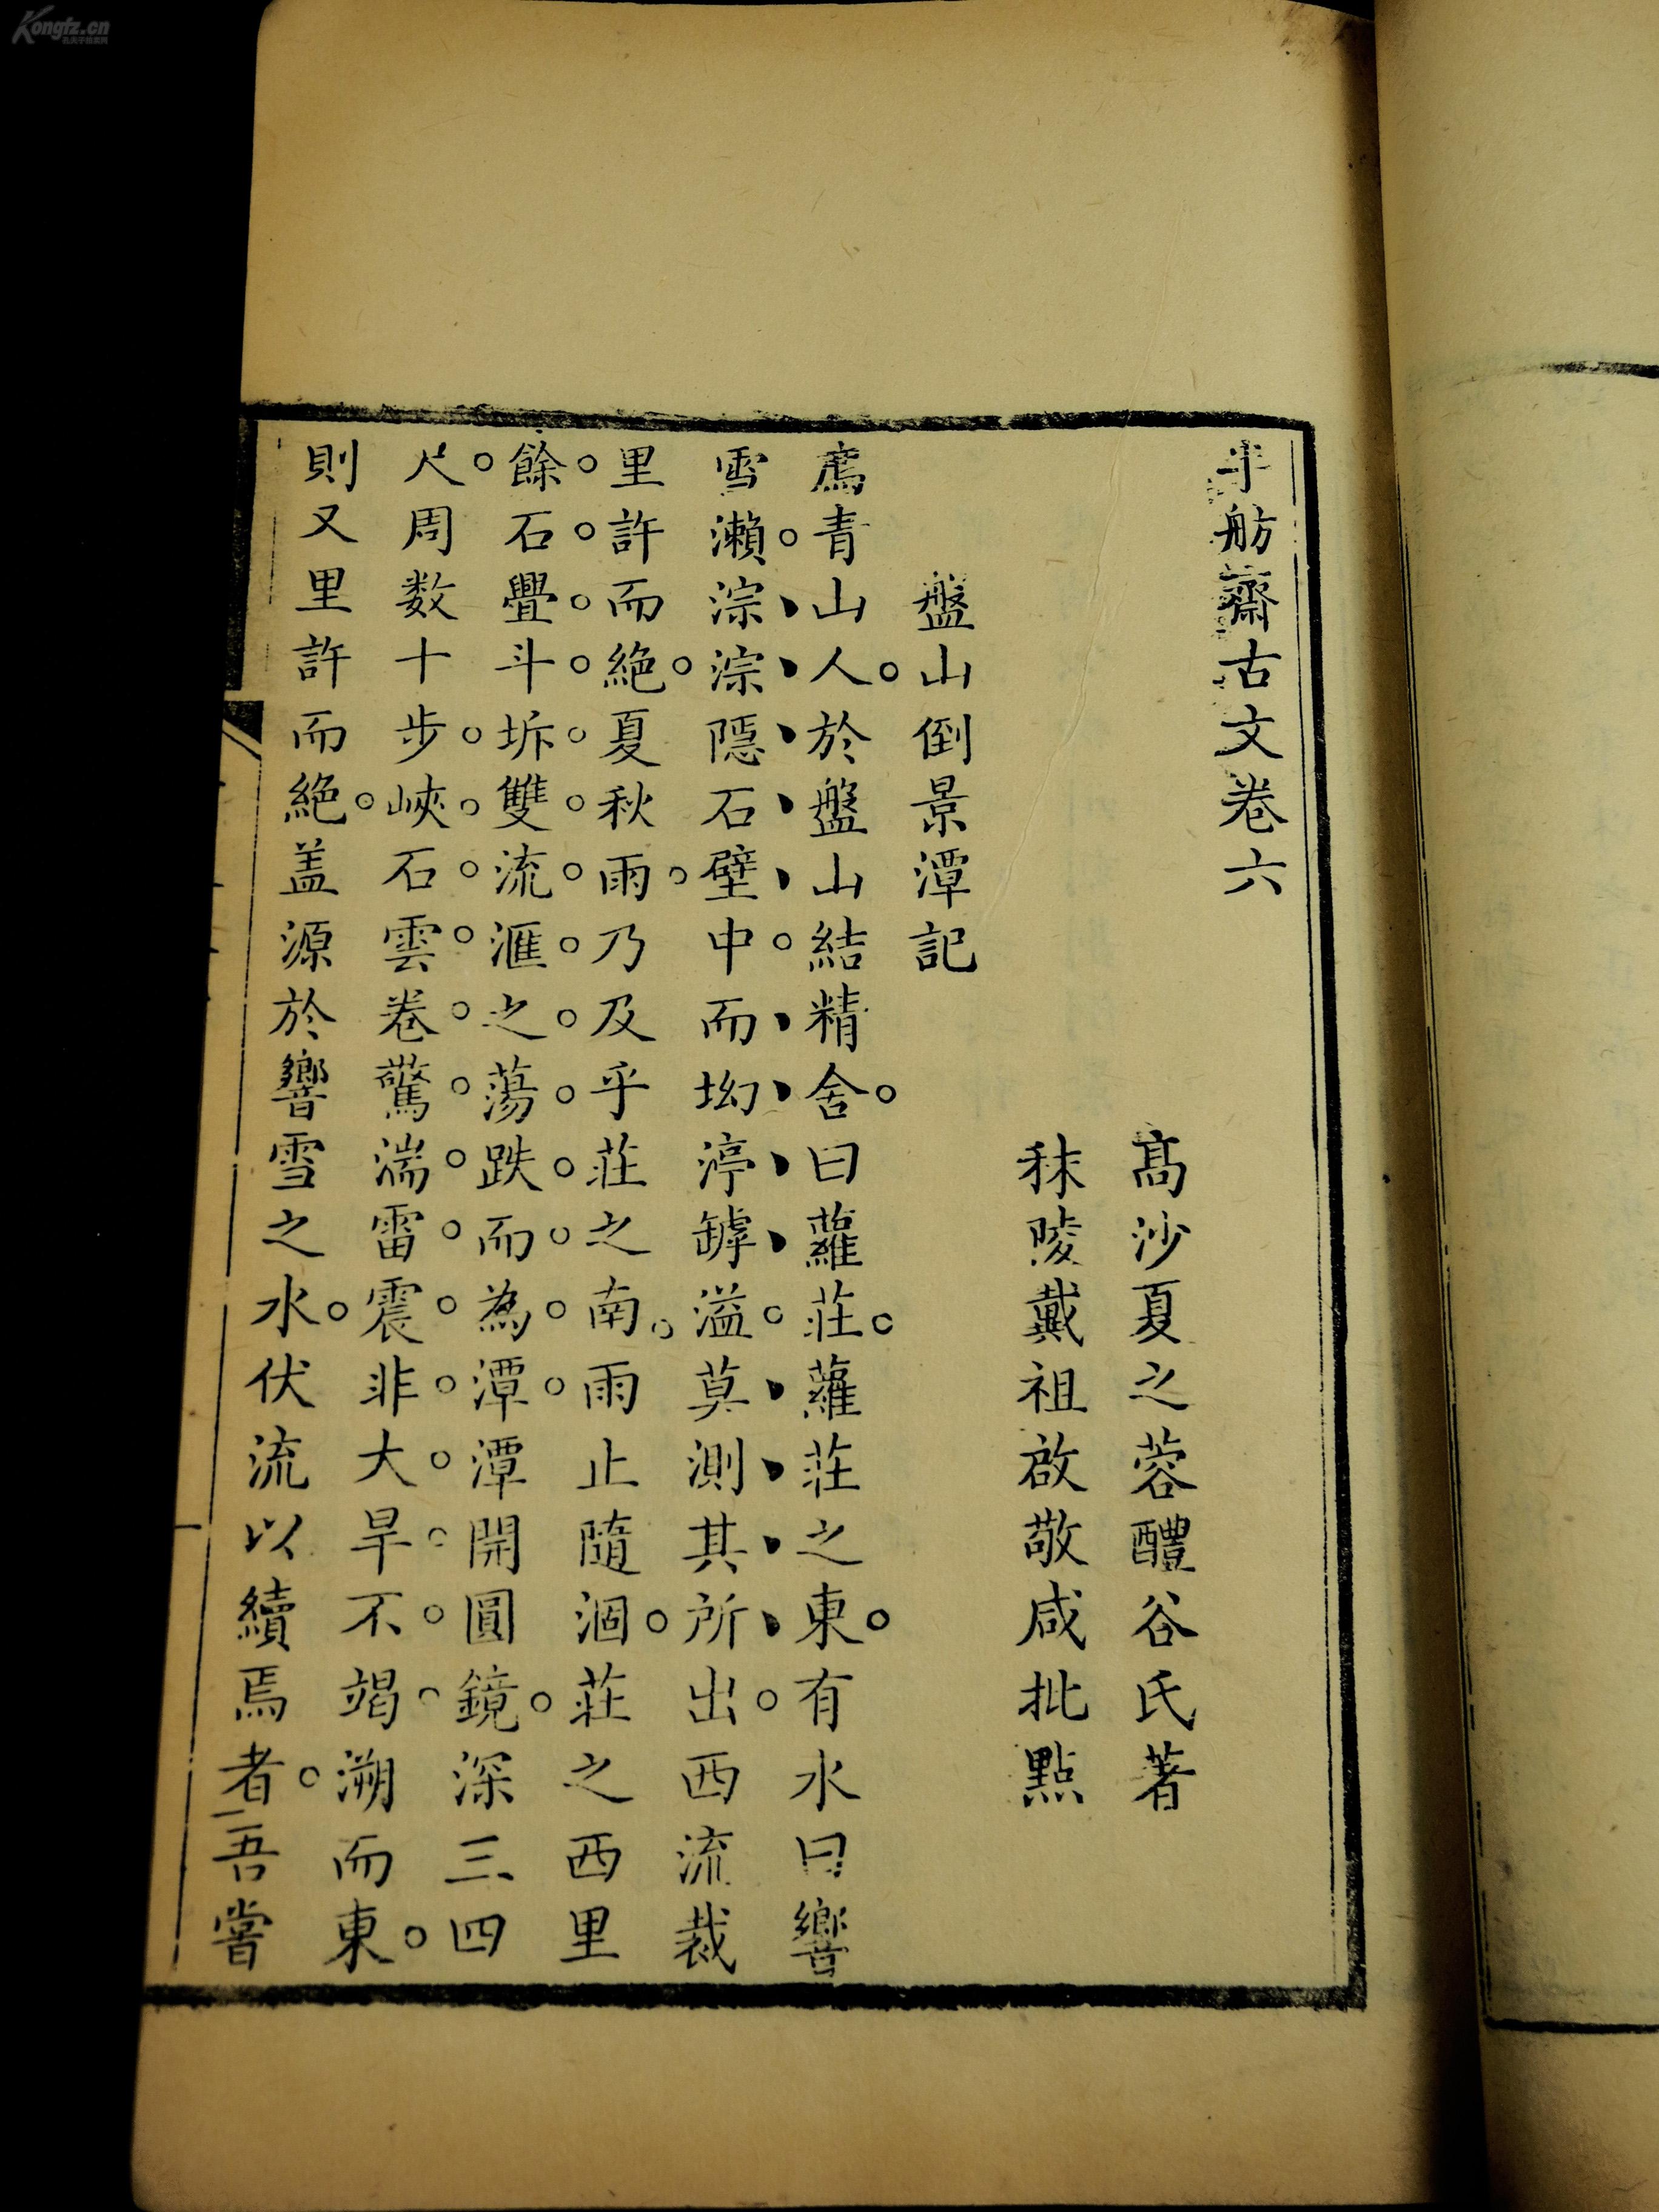 半舫齋古文卷六
高沙夏之蓉醴谷氏著
秣陵戴祖啟敬咸批點
盤山倒景潭記
廌青山人。於盤山結精舍。曰蘿莊。蘿莊之東。有水曰響
雪瀨。淙淙隱石壁中。而坳渟罅溢。莫測其所出。西流裁
里許而絶。夏秋雨。乃及乎莊之南。雨止隨涸。莊之西里
餘。石疊斗坼。雙流滙之。蕩跌而為潭。潭開圓鏡。深三四
尺。周数十步。峽石雲卷。驚湍雷震。非大旱不竭。溯而東。
則又里許而絶。盖源於響雪之水。伏流以續焉者。吾嘗
Kongfz.cn